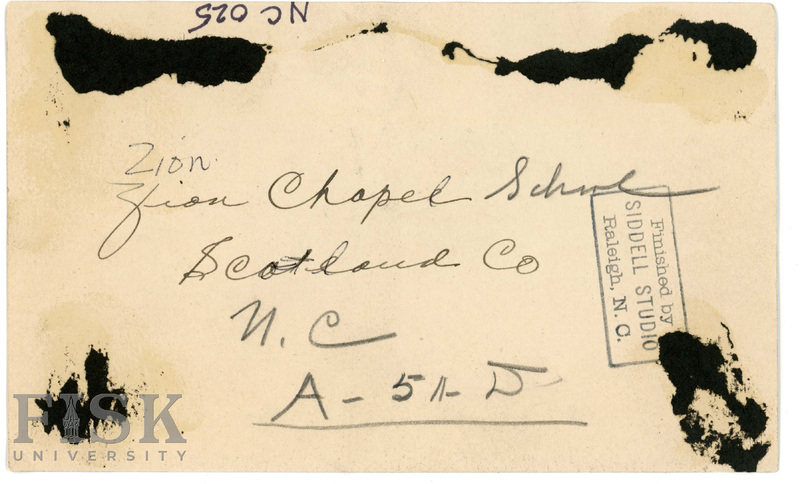 NC 025
Zion
Zion Chapel School
Scotland Co
N. C
A - 5
Finished by
SIDDELL STUDIO
Raleigh, N. C.
FISK
UNIVERSITY